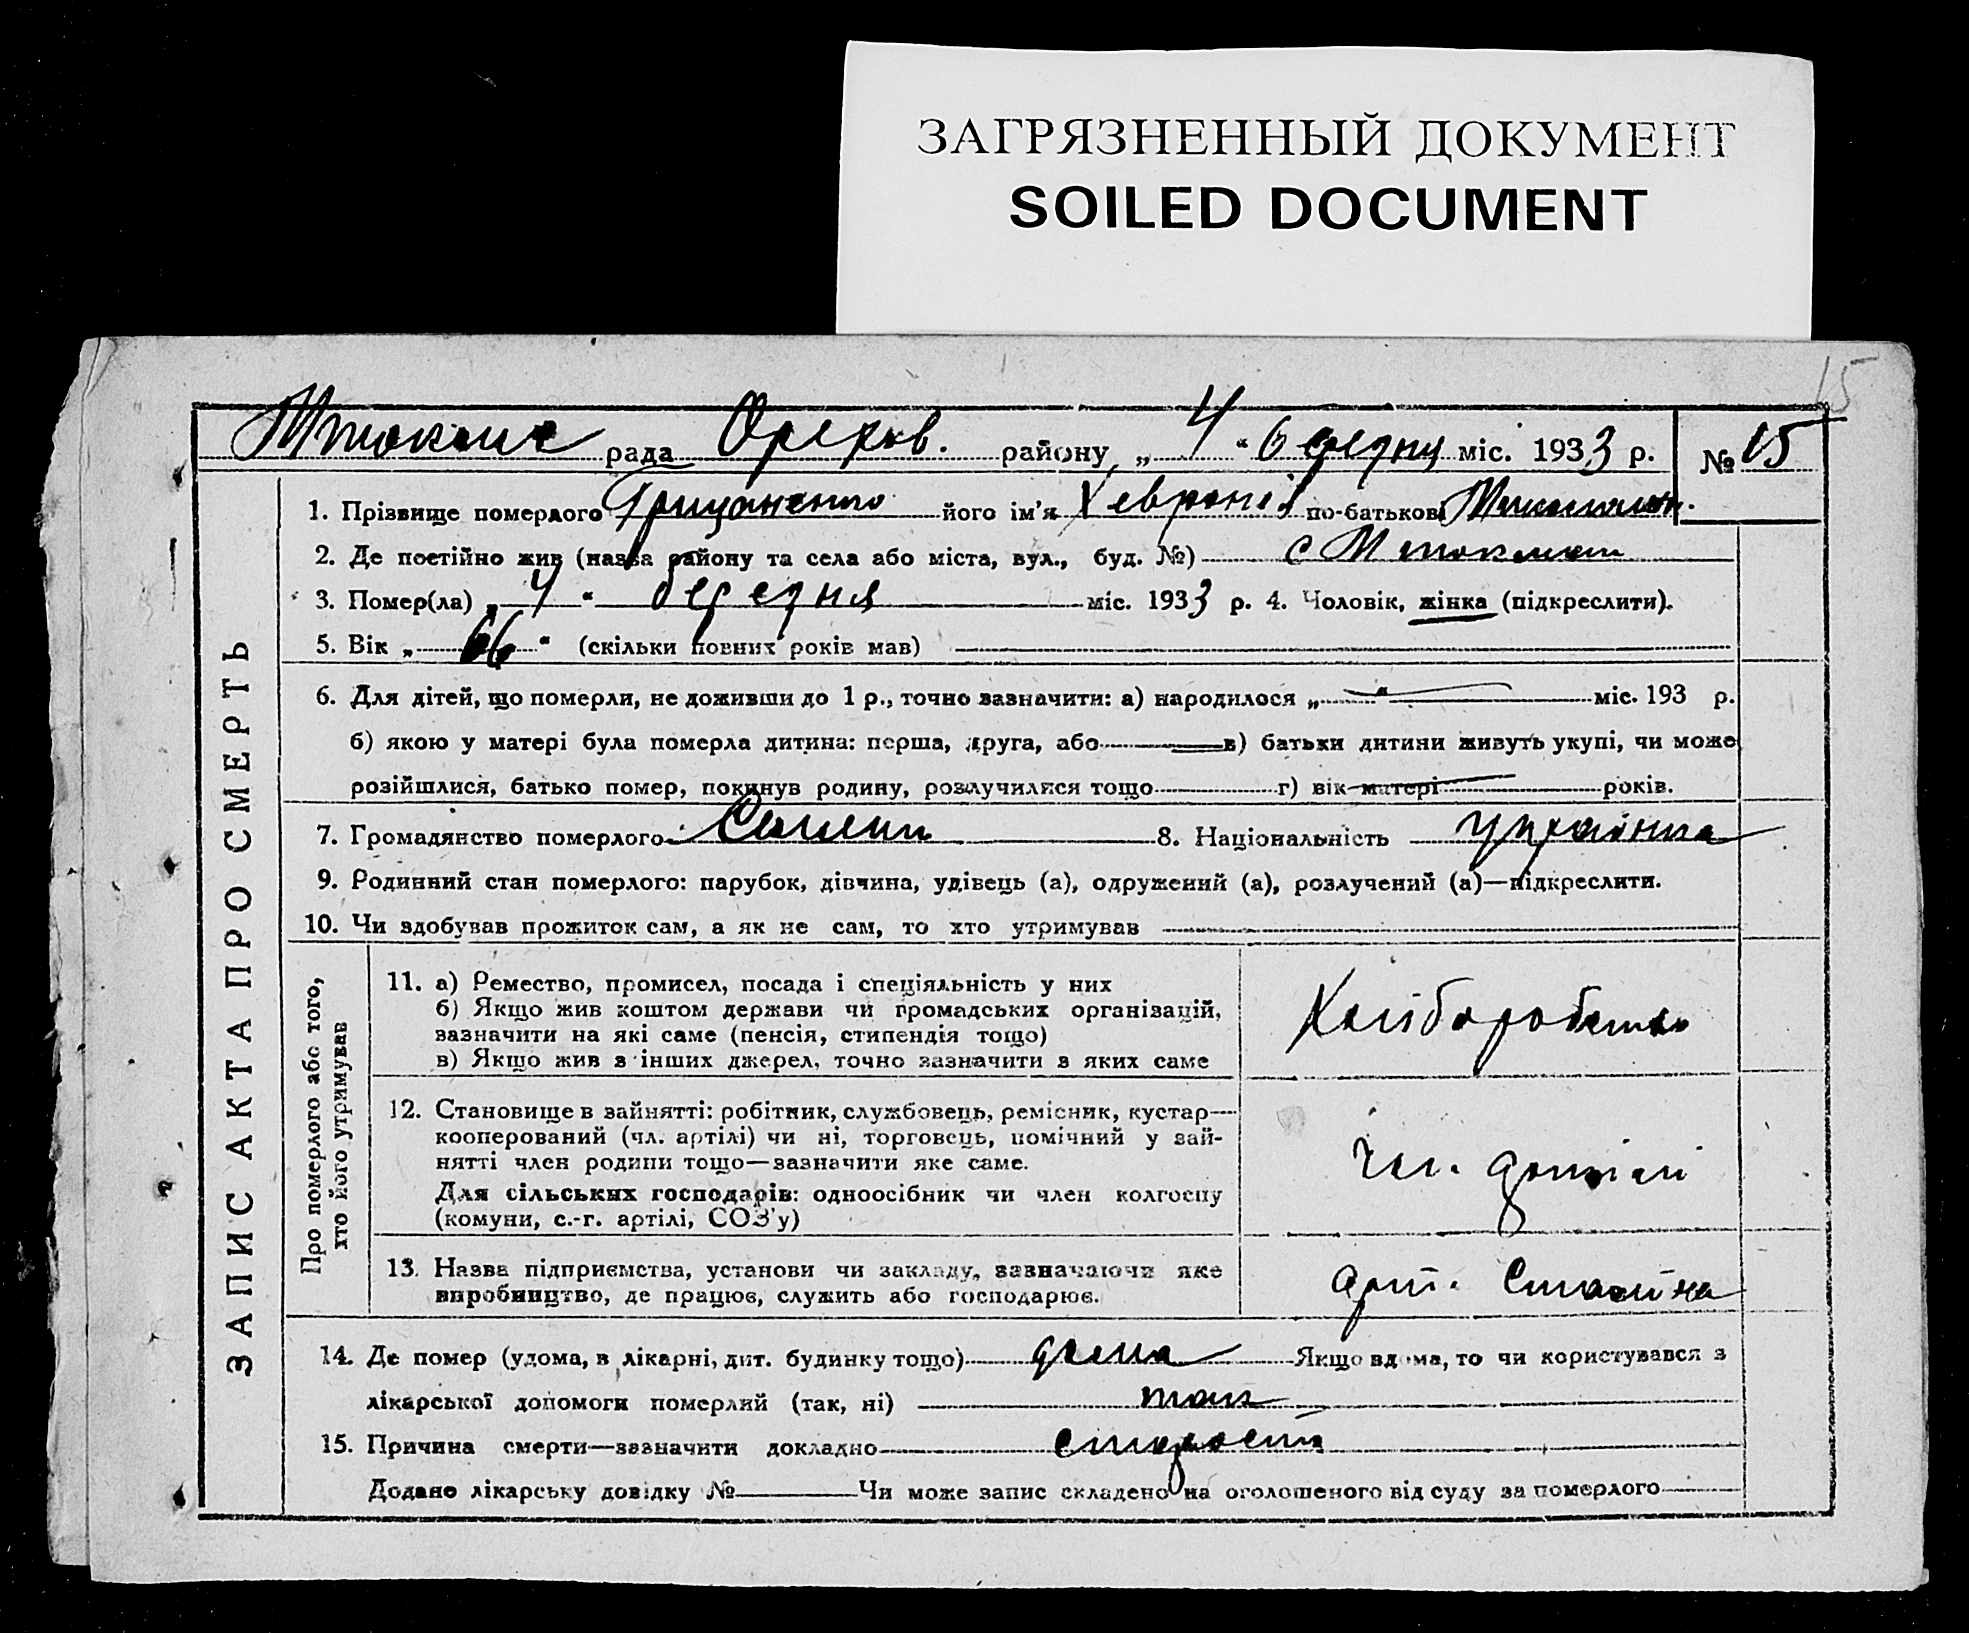 ЗАГРЯЗНЕННЫЙ ДОКУМЕНТ
SOILED DOCUMENT
15
рада Орехів. району „ 4 “ березня міс. 1933 р. № 15
1. Прізвище померлого Грищенко його ім'я Хевронія по-батькові
2. Де постійно жив (назва району та села або міста, вул., буд. №) с М Токмак
3. Помер(ла) „ 4 “ березня міс. 1933 р. 4. Чоловік, жінка (підкреслити).
5. Вік „ 66 “ (скільки повних років мав)
6. Для дітей, що померли, не доживши до 1 р., точно зазначити: а) народилося „ “ міс. 193 р.
б) якою у матері була померла дитина: перша, друга, або в) батьки дитини живуть укупі, чи може
розійшлися, батько помер, покинув родину, розлучилися тощо г) вік матері років.
7. Громадянство померлого 8. Національність українка
9. Родинний стан померлого: парубок, дівчина, удівець (а), одружений (а), розлучений (а)—підкреслити.
10. Чи здобував прожиток сам, а як не сам, то хто утримував
ЗАПИС АКТА ПРО СМЕРТЬ
Про померлого або того,
хто його утримував
11. а) Ремество, промисел, посада і спеціяльність у них
б) Якщо жив коштом держави чи громадських організацій,
зазначити на які саме (пенсія, стипендія тощо)
в) Якщо жив з інших джерел, точно зазначити з яких саме
Хліборобство
12. Становище в зайнятті: робітник, службовець, ремісник, кустар—
кооперований (чл. артілі) чи ні, торговець, помічний у зай-
нятті член родини тощо—зазначити яке саме.
Для сільських господарів: одноосібник чи член колгоспу
(комуни, с.-г. артілі, СОЗ'у)
Чл. артілі
13. Назва підприємства, установи чи закладу, зазначаючи яке
виробництво, де працює, служить або господарює.
арт. Сталіна
14. Де помер (удома, в лікарні, дит. будинку тощо) дома Якщо вдома, то чи користувався з
лікарської допомоги померлий (так, ні) так
15. Причина смерти—зазначити докладно старость
Додано лікарську довідку № Чи може запис складено на оголошеного від суду за померлого